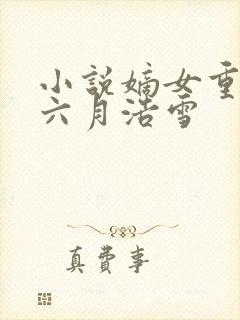 小说嫡女重
六月浩雪
真费事